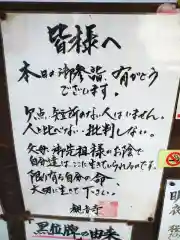 皆様へ
本日の御参詣、有がとう
ございます。
欠点、短所のない人はいません。
人と比べない、批判しない。
父母、御先祖様のお陰で
自分達はここに生きていられるのです。
限り有る自分の命、
大切に生きて下さい。
観音寺
黒位牌の由来